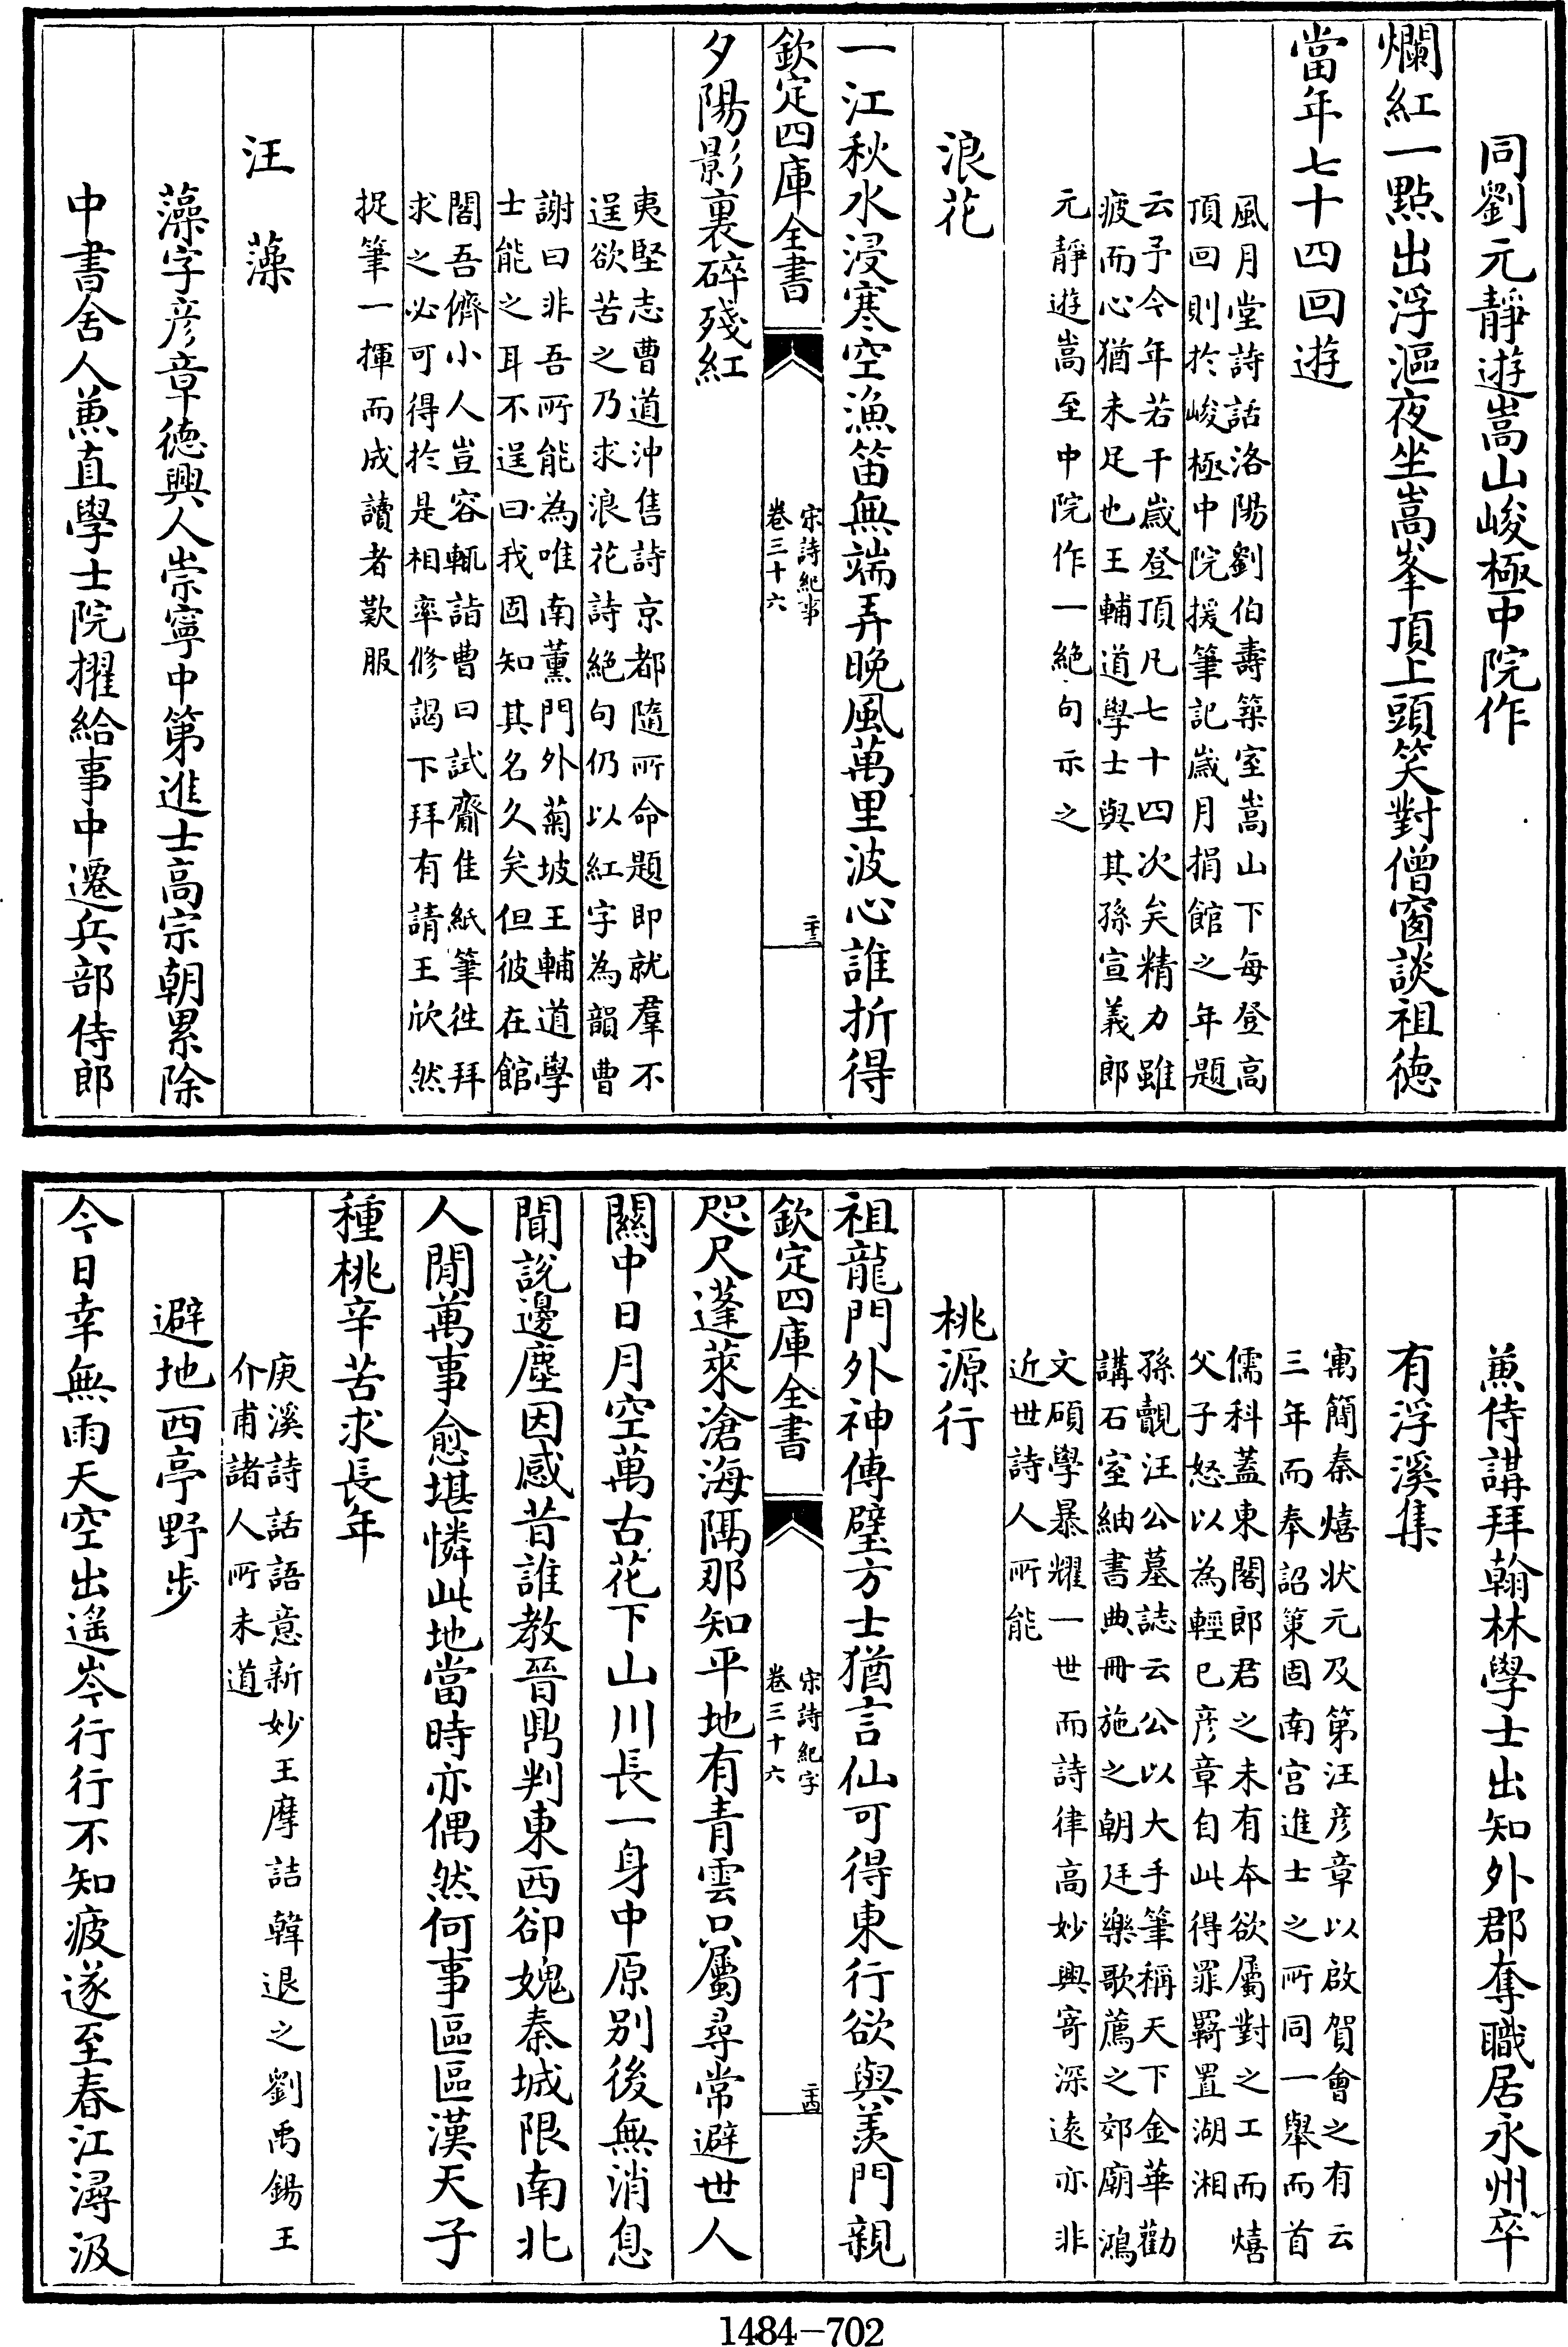 同劉元靜遊嵩山峻極中院作
爛紅一點出浮漚夜坐嵩峯頂上頭笑對僧窗談祖徳
當年七十四回遊
風月堂詩話洛陽劉伯壽築室嵩山下每登高
頂回則於峻極中院援筆記嵗月捐館之年題
云予今年若干嵗登頂凡七十四次矣精力雖
疲而心猶未足也王輔道學士與其孫宣義郎
元靜遊嵩至中院作一絶句示之
浪花
一江秋水浸寒空漁笛無端弄晚風萬里波心誰折得
欽定四庫全書
宋詩紀事
卷三十六
二十三
夕陽影裏碎殘紅
夷堅志曹道沖售詩京都隨所命題即就羣不
逞欲苦之乃求浪花詩絶句仍以紅字為韻曹
謝曰非吾所能為唯南薰門外菊坡王輔道學
士能之耳不逞曰我固知其名久矣但彼在館
閣吾儕小人豈容輒詣曹曰試齎佳紙筆徃拜
求之必可得於是相率修謁下拜有請王欣然
捉筆一揮而成讀者歎服
汪藻
藻字彦章徳興人崇寧中第進士高宗朝累除
中書舍人兼直學士院擢給事中遷兵部侍郎
兼侍講拜翰林學士出知外郡奪職居永州卒
有浮溪集
寓簡秦熺状元及第汪彦章以啟賀會之有云
三年而奉詔䇿固南宫進士之所同一舉而首
儒科蓋東閣郎君之未有本欲屬對之工而熺
父子怒以為輕已彦章自此得罪羇置湖湘
孫覿汪公墓誌云公以大手筆稱天下金華勸
講石室紬書典冊施之朝廷樂歌薦之郊廟鴻
文碩學暴耀一世而詩律高妙興寄深逺亦非
近世詩人所能
桃源行
祖龍門外神傳璧方士猶言仙可得東行欲與羨門親
欽定四庫全書
宋詩紀字
卷三十六
二十四
咫尺蓬萊滄海隅那知平地有青雲只屬尋常避世人
關中日月空萬古花下山川長一身中原别後無消息
聞說邊塵因感昔誰教晉鼎判東西卻媿秦城限南北
人間萬事愈堪憐此地當時亦偶然何事區區漢天子
種桃辛苦求長年
庚溪詩話語意新妙王摩詰韓退之劉禹鍚王
介甫諸人所未道
避地西亭野步
今日幸無雨天空出遥岑行行不知疲遂至春江潯汲
1484-702